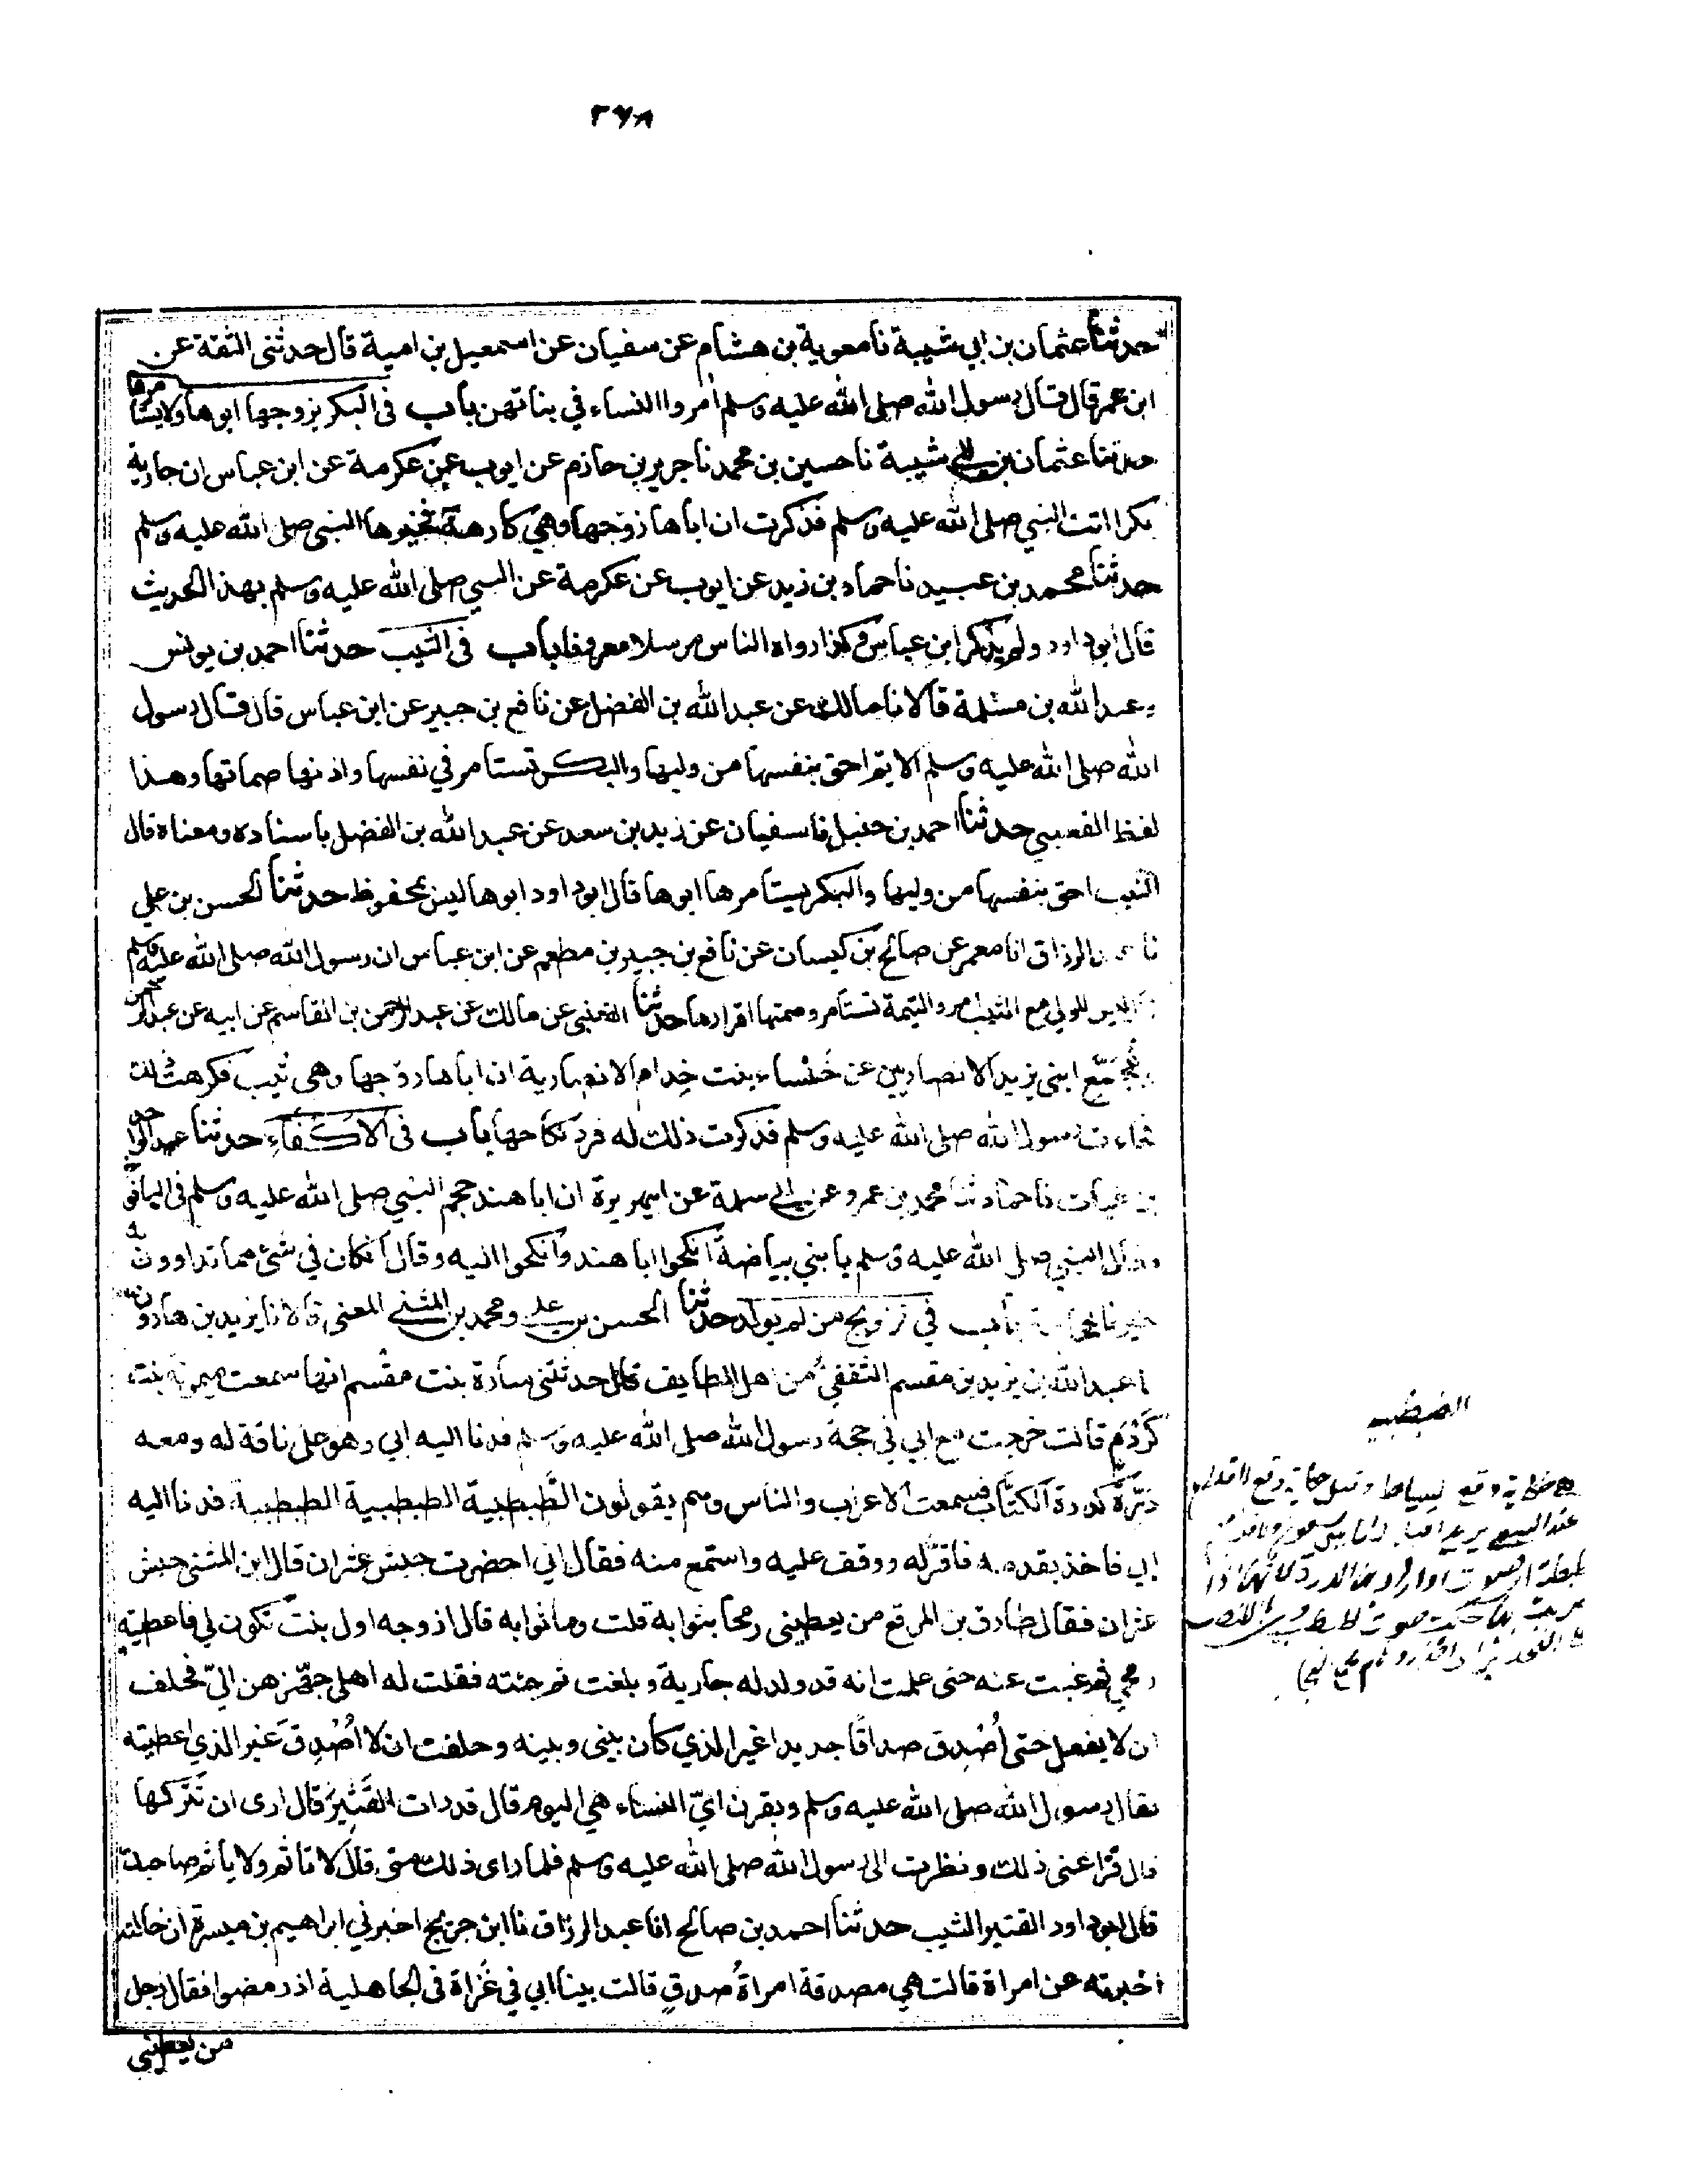 ٣٦٨
حدثنا عثمان بن ابي شيبة نا معوية بن هشام عن سفيان عن اسمعيل بن امية قال حدثنى الثقة عن
ابن عمر قال قال رسول الله صلى الله عليه وسلم أمروا النساء في بناتهن باب فى البكر يزوجها ابوها ولا يستأمرها
حدثنا عثمان بن ابي شيبة نا حسين بن محمد نا جرير بن حازم عن ايوب عن عكرمة عن ابن عباس ان جارية
بكرا اتت النبي صلى الله عليه وسلم فذكرت ان اباها زوجها وهي كارهة فخيرها النبى صلى الله عليه وسلم
حدثنا محمد بن عبيد نا حماد بن زيد عن ايوب عن عكرمة عن النبي صلى الله عليه وسلم بهذا الحديث
قال ابو داود ولم يذكر ابن عباس وكذا رواه الناس مرسلا معروفا باب فى الثيب حدثنا احمد بن يونس
وعبد الله بن مسلمة قالا نا مالك عن عبد الله بن الفضل عن نافع بن جبير عن ابن عباس قال قال رسول
الله صلى الله عليه وسلم الايم احق بنفسها من وليها والبكر تستامر في نفسها واذنها صماتها وهذا
لفظ القعنبي حدثنا احمد بن حنبل نا سفيان عن زيد بن سعد عن عبد الله بن الفضل باسناده ومعناه قال
الثيب احق بنفسها من وليها والبكر يستامرها ابوها قال ابو داود ابوها ليس بمحفوظ حدثنا الحسن بن علي
نا عبد الرزاق انا معمر عن صالح بن كيسان عن نافع بن جبير بن مطعم عن ابن عباس ان رسول الله صلى الله عليه وسلم
قال ليس للولي مع الثيب امر واليتيمة تستامر وصمتها اقرارها حدثنا القعنبى عن مالك عن عبد الرحمن بن القاسم عن ابيه عن عبد الرحمن
ومُجَمّع ابنى يزيد الانصاريين عن خَنْساء بنت خِدام الانصارية ان اباها زوجها وهى ثيب فكرهت ذلك
فجاءت رسول الله صلى الله عليه وسلم فذكرت ذلك له فرد نكاحها باب فى الاكْفَاءِ حدثنا عبد الواحد
بن غياث نا حماد ثنا محمد بن عمرو عن ابي سلمة عن ابى هريرة ان ابا هند حجم النبي صلى الله عليه وسلم فى اليافوخ
وقال النبي صلى الله عليه وسلم يا بني بياضة انكحوا ابا هند وأنكحوا اليه وقال ان كان في شئ مما تداوون به
خير فالحجامة باب في تزويج من لم يولد حدثنا الحسن بن علي ومحمد بن المثنى المعنى قالا نا يزيد بن هارون
انا عبد الله بن يزيد بن مقسم الثقفي من اهل الطايف قال حدثتنى سارة بنت مقسم انها سمعت ميمونة بنت
كَرْدَم قالت خرجت مع ابي في حجة رسول الله صلى الله عليه وسلم فدنا اليه ابي وهو على ناقة له ومعه
دِرّة كدرة الكتّاب فسمعت الاعراب والناس وهم يقولون الطَبطبية الطبطبية الطبطبية فدنا اليه
ابي فاخذ بقدمه فاقرّ له ووقف عليه واستمع منه فقال اني احضرت جيش عثران قال ابن المثنى جيش
غثران فقال طارق بن المرقع من يعطينى رمحا بثوابه قلت وما ثوابه قال ازوجه اول بنت تكون لي فاعطيته
رمحي ثم غبت عنه حتى علمت انه قد ولد له جارية وبلغت ثم جئته فقلت له اهلى جهّزهن اليّ فحلف
ان لا يفعل حتى أُصْدِق صداقا جديدا غير الذي كان بينى وبينه وحلفت ان لا أُصْدِقَ غير الذي اعطيته
فقال رسول الله صلى الله عليه وسلم وبقرن ايّ النساء هي اليوم قال قد رات القَتِيْرَ قال ارى ان تَتْركها
قال فراعنى ذلك ونظرت الى رسول الله صلى الله عليه وسلم فلما راى ذلك منى قال لا تاثم ولا ياثم صاحبك
قال ابو داود القتير الشيب حدثنا احمد بن صالح انا عبد الرزاق نا ابن جريج اخبرني ابراهيم بن ميسرة ان خالته
اخبرته عن امراة قالت هي مصدقة امراةُ صدقٍ قالت بينا ابي في غَزاة فى الجاهلية اذ رمضوا فقال رجل
من يعطيني
الطبطبية
حكاية وقع السياط وقيل حكاية وقع الاقدام
عند السعي